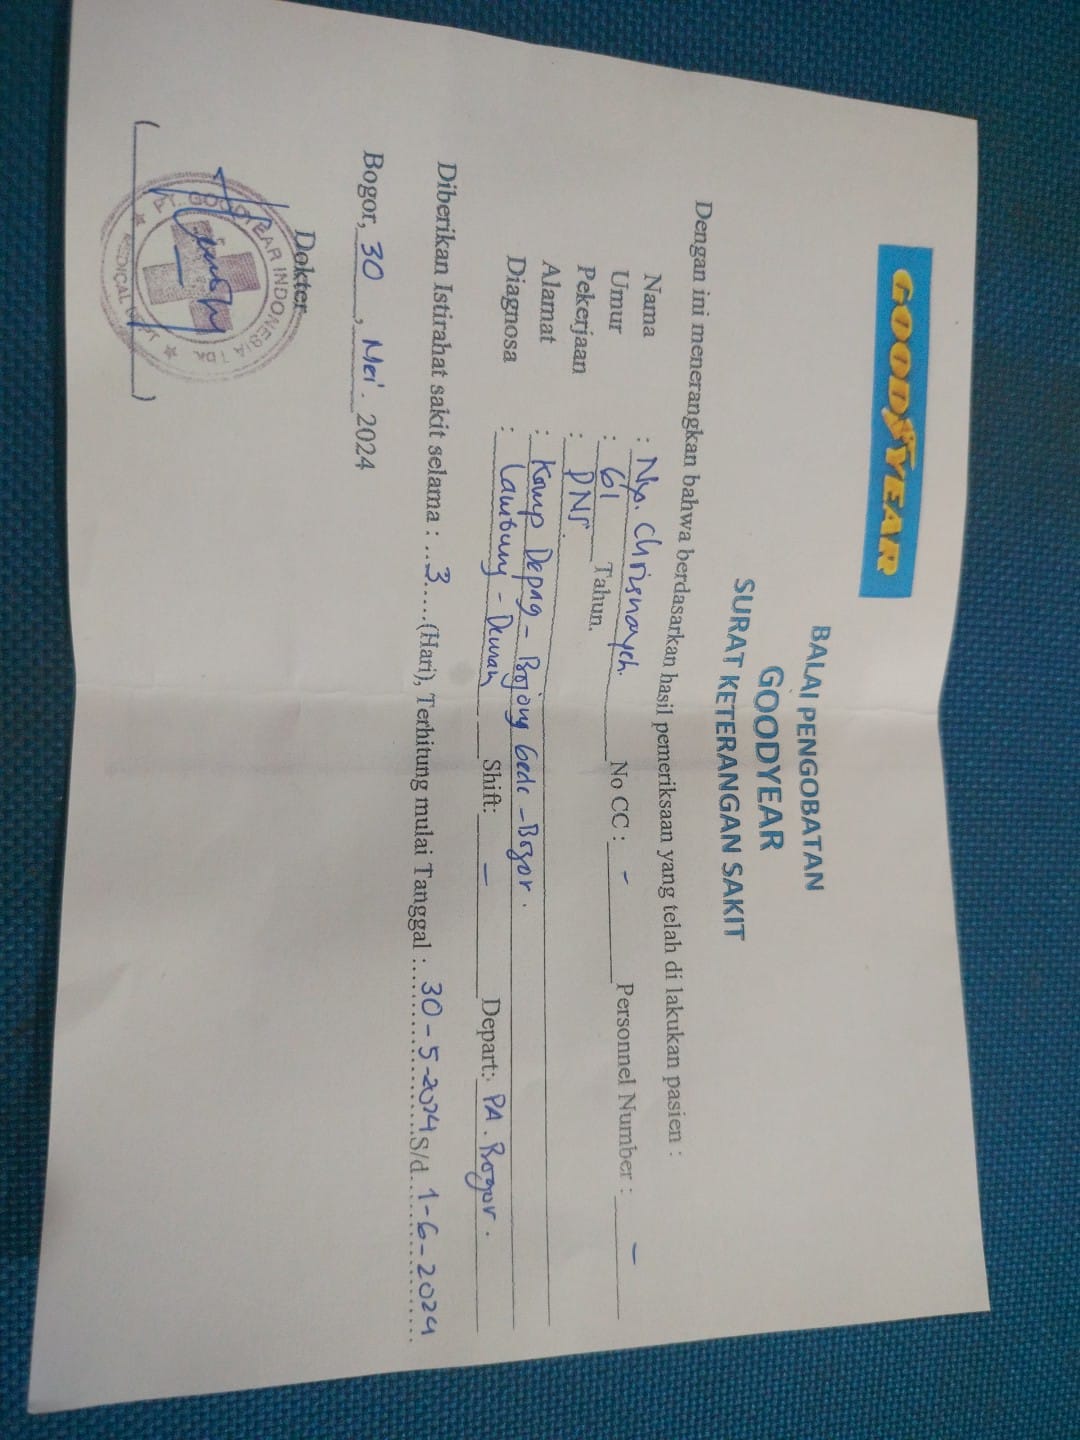 GOODYEAR
BALAI PENGOBATAN
GOODYEAR
SURAT KETERANGAN SAKIT
Dengan ini menerangkan bahwa berdasarkan hasil pemeriksaan yang telah di lakukan pasien :
Nama : Nyo. Chrisnayeh. No CC : - Personnel Number : -
Umur : 61 Tahun.
Pekerjaan : PNS.
Alamat : Kamp Depag - Bojong Gede - Bogor.
Diagnosa : Lambung - Demam Shift: - Depart: PA. Bogor.
Diberikan Istirahat sakit selama : ..3....(Hari), Terhitung mulai Tanggal : 30-5-2024 S/d. 1-6-2024
Bogor, 30, Mei. 2024
Dokter
PT. GOODYEAR INDONESIA Tbk
MEDICAL
( )